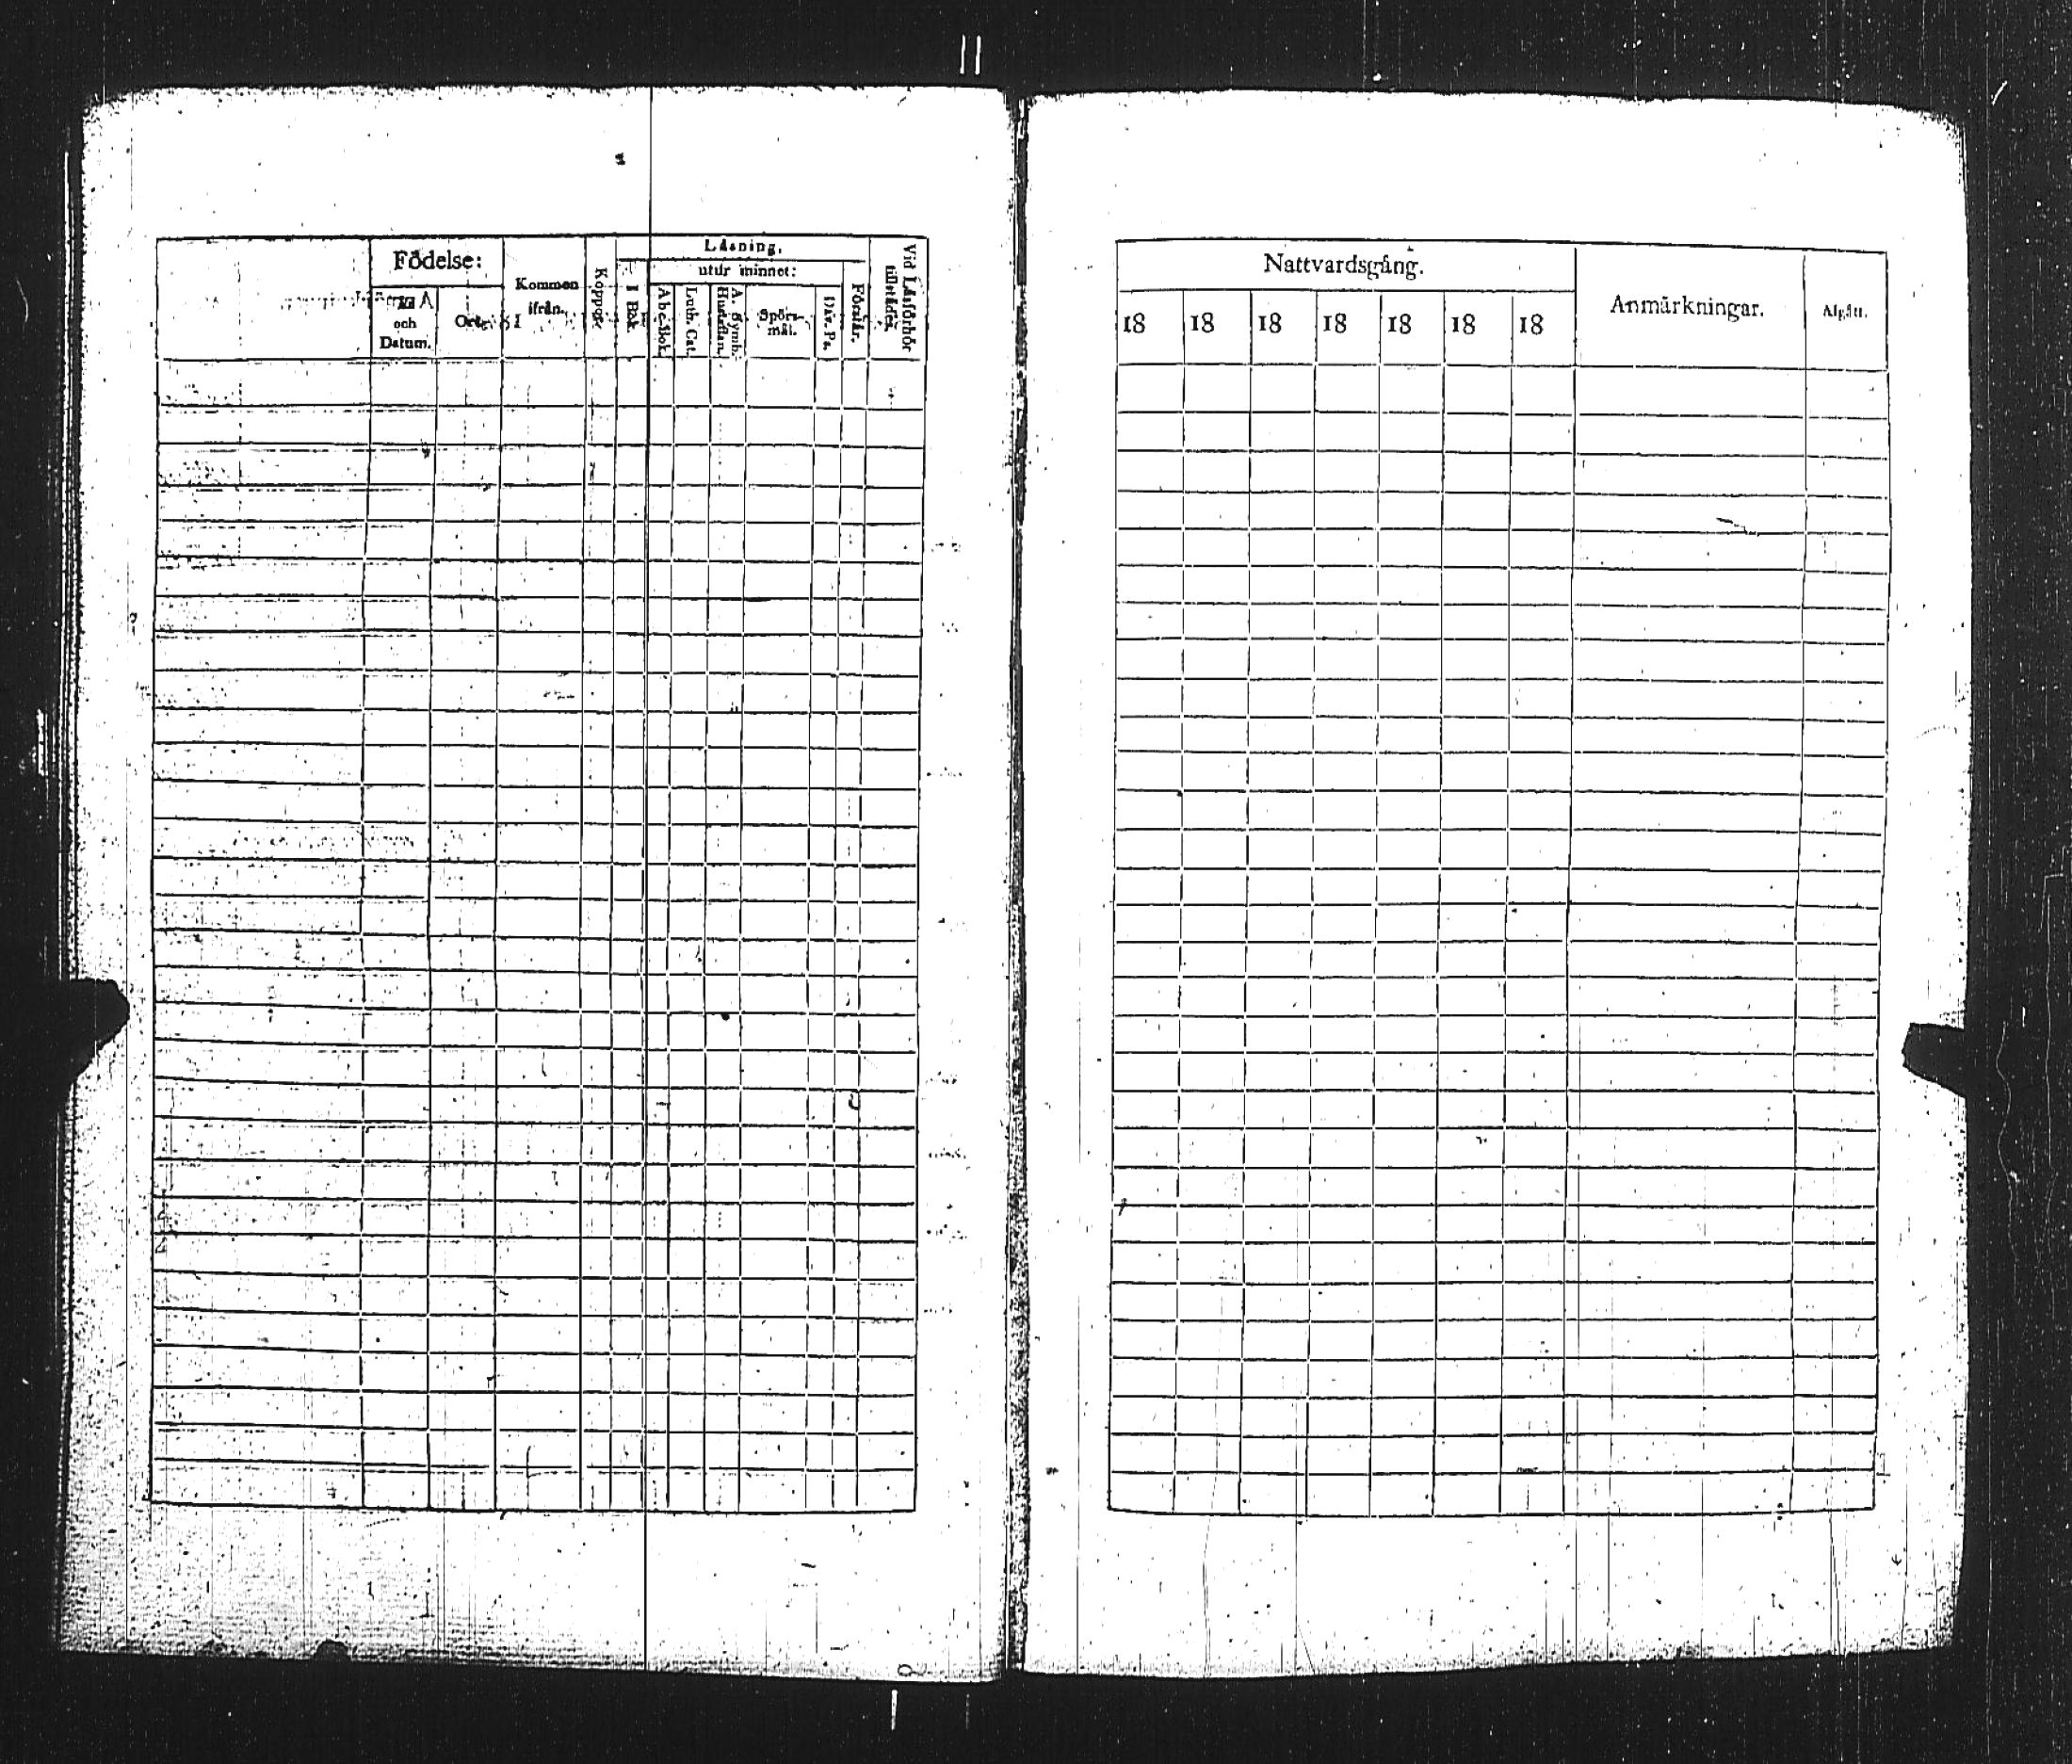 Födelse:
och
Datum.
Ort.
Kommen
ifrån.
Koppor.
Läsning.
I Bok.
utur minnet:
A b c-Bok.
Luth. Cat.
A. Symb.
Hustaflan.
Spörs-
mål.
Dav. Ps.
Förstår.
Vid Läsförhör
tillstädes.
Nattvardsgång.
18 18 18 18 18 18 18
Anmärkningar.
Afgått.